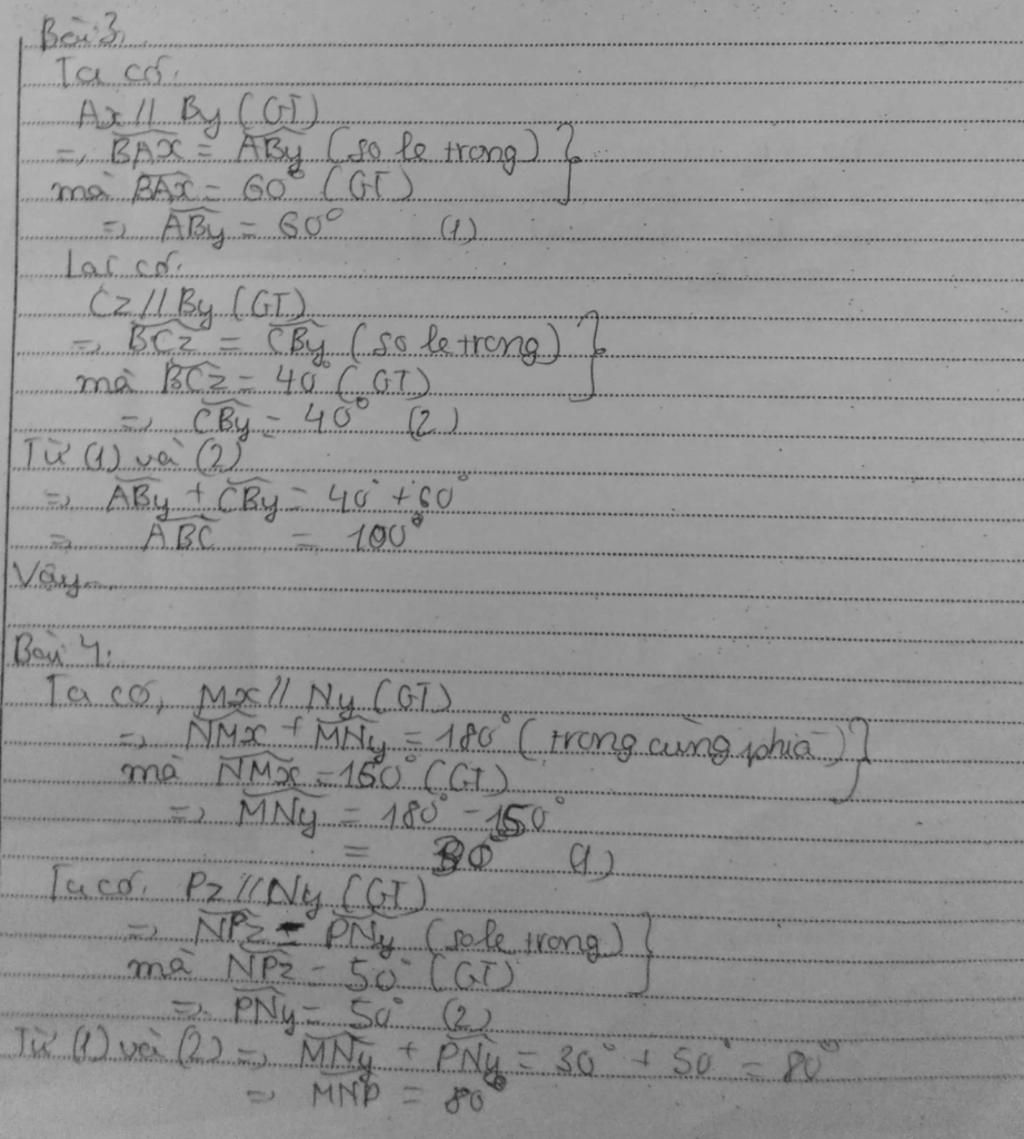 Bài 3.
Ta có.
Ax // By (GT)
=> BAx = ABy (so le trong) }
mà BAx = 60° (GT)
=> ABy = 60° (1)
Lại có.
Cz // By (GT)
=> BCz = CBy (so le trong) }
mà BCz = 40° (GT)
=> CBy = 40° (2)
Từ (1) và (2)
=> ABy + CBy = 40° + 60°
=> ABC = 100°
Vậy...
Bài 4.
Ta có, Mx // Ny (GT)
=> NMx + MNy = 180° (trong cùng phía) }
mà NMx = 150° (GT)
=> MNy = 180° - 150°
= 30° (1)
Ta có. Pz // Ny (GT)
=> NPz = PNy (so le trong) }
mà NPz = 50° (GT)
=> PNy = 50° (2)
Từ (1) và (2) => MNy + PNy = 30° + 50° = 80°
=> MNP = 80°